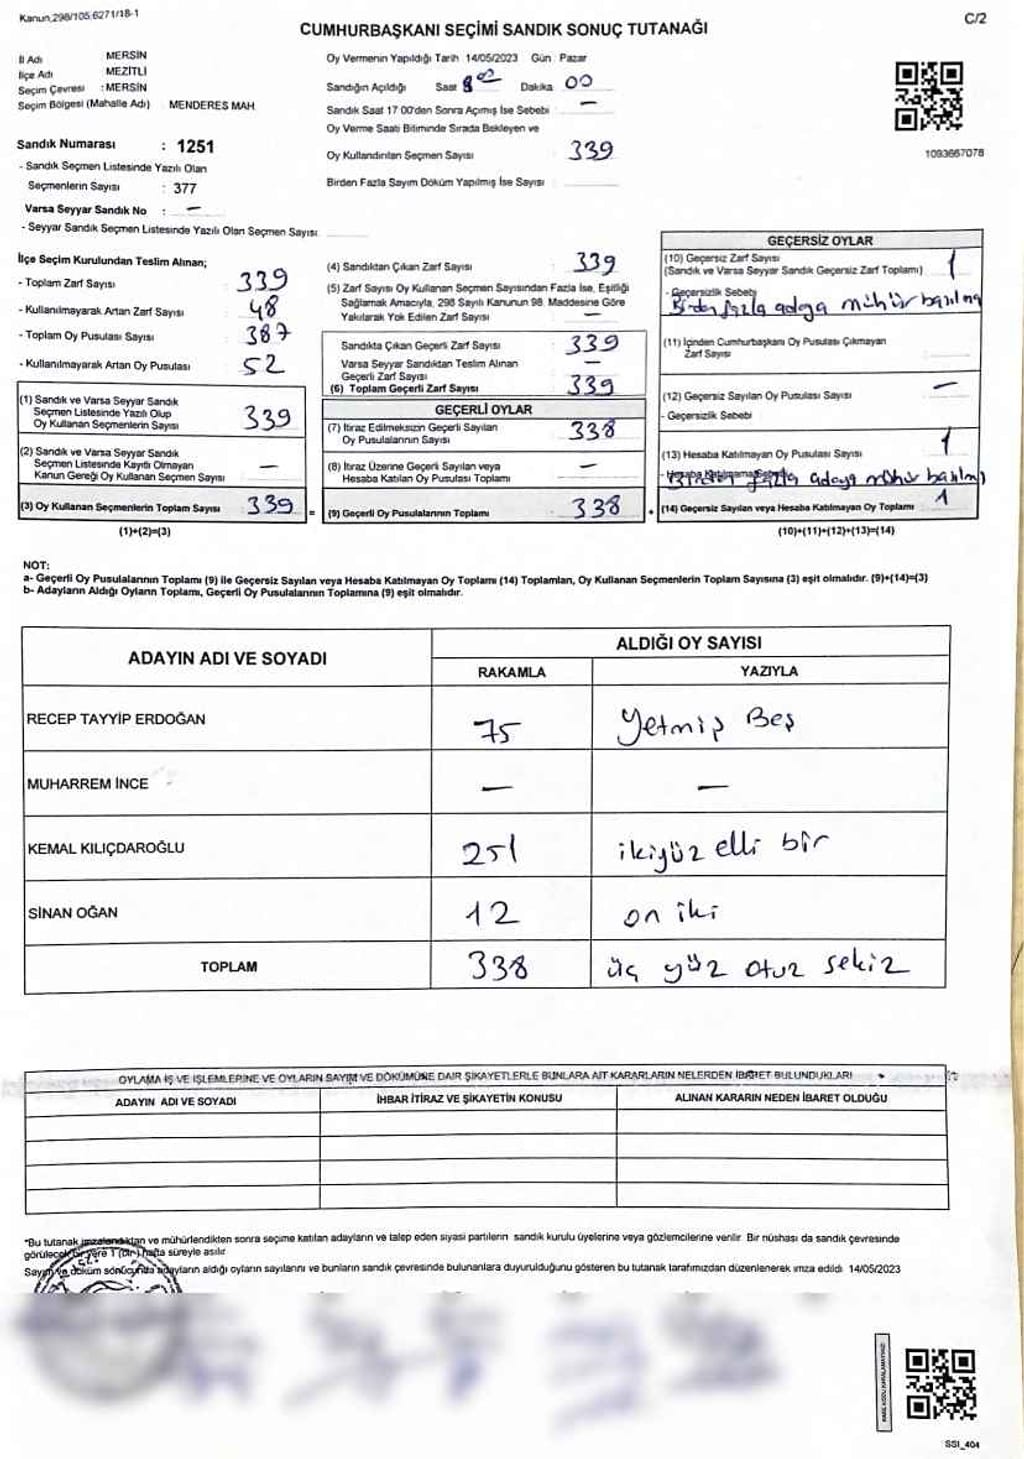 Kanun,298/105,6271/18-1
C/2
CUMHURBAŞKANI SEÇİMİ SANDIK SONUÇ TUTANAĞI
İl Adı MERSİN
İlçe Adı MEZİTLİ
Seçim Çevresi : MERSİN
Seçim Bölgesi (Mahalle Adı) MENDERES MAH
Sandık Numarası : 1251
- Sandık Seçmen Listesinde Yazılı Olan
Seçmenlerin Sayısı : 377
Varsa Seyyar Sandık No : —
- Seyyar Sandık Seçmen Listesinde Yazılı Olan Seçmen Sayısı
Oy Vermenin Yapıldığı Tarih 14/05/2023 Gün : Pazar
Sandığın Açıldığı Saat 8 00 Dakika 00
Sandık Saat 17 00'den Sonra Açımış İse Sebebi —
Oy Verme Saati Bitiminde Sırada Bekleyen ve
Oy Kullandırılan Seçmen Sayısı 339
Birden Fazla Sayım Döküm Yapılmış İse Sayısı
1093667078
İlçe Seçim Kurulundan Teslim Alınan;
- Toplam Zarf Sayısı 339
- Kullanılmayarak Artan Zarf Sayısı 48
- Toplam Oy Pusulası Sayısı 387
- Kullanılmayarak Artan Oy Pusulası 52
(1) Sandık ve Varsa Seyyar Sandık
Seçmen Listesinde Yazılı Olup
Oy Kullanan Seçmenlerin Sayısı 339
(2) Sandık ve Varsa Seyyar Sandık
Seçmen Listesinde Kayıtlı Olmayan
Kanun Gereği Oy Kullanan Seçmen Sayısı —
(3) Oy Kullanan Seçmenlerin Toplam Sayısı 339 =
(1)+(2)=(3)
(4) Sandıktan Çıkan Zarf Sayısı 339
(5) Zarf Sayısı Oy Kullanan Seçmen Sayısından Fazla İse, Eşitliği
Sağlamak Amacıyla, 298 Sayılı Kanunun 98. Maddesine Göre
Yakılarak Yok Edilen Zarf Sayısı —
Sandıkta Çıkan Geçerli Zarf Sayısı 339
Varsa Seyyar Sandıktan Teslim Alınan
Geçerli Zarf Sayısı —
(6) Toplam Geçerli Zarf Sayısı 339
GEÇERLİ OYLAR
(7) İtiraz Edilmeksizin Geçerli Sayılan
Oy Pusulalarının Sayısı 338
(8) İtiraz Üzerine Geçerli Sayılan veya
Hesaba Katılan Oy Pusulası Toplamı —
(9) Geçerli Oy Pusulalarının Toplamı 338 +
GEÇERSİZ OYLAR
(10) Geçersiz Zarf Sayısı
(Sandık ve Varsa Seyyar Sandık Geçersiz Zarf Toplamı) 1
- Geçersizlik Sebebi
Birden fazla adaya mühür basılmış
(11) İçinden Cumhurbaşkanı Oy Pusulası Çıkmayan
Zarf Sayısı
(12) Geçersiz Sayılan Oy Pusulası Sayısı —
- Geçersizlik Sebebi
(13) Hesaba Katılmayan Oy Pusulası Sayısı 1
- Hesaba Katılmama Sebebi
Birden fazla adaya mühür basılmış
(14) Geçersiz Sayılan veya Hesaba Katılmayan Oy Toplamı 1
(10)+(11)+(12)+(13)=(14)
NOT:
a- Geçerli Oy Pusulalarının Toplamı (9) ile Geçersiz Sayılan veya Hesaba Katılmayan Oy Toplamı (14) Toplamları, Oy Kullanan Seçmenlerin Toplam Sayısına (3) eşit olmalıdır. (9)+(14)=(3)
b- Adayların Aldığı Oyların Toplamı, Geçerli Oy Pusulalarının Toplamına (9) eşit olmalıdır.
ADAYIN ADI VE SOYADI ALDIĞI OY SAYISI
RAKAMLA YAZIYLA
RECEP TAYYİP ERDOĞAN 75 Yetmiş Beş
MUHARREM İNCE — —
KEMAL KILIÇDAROĞLU 251 ikiyüz elli bir
SİNAN OĞAN 12 on iki
TOPLAM 338 üç yüz otuz sekiz
OYLAMA İŞ VE İŞLEMLERİNE VE OYLARIN SAYIM VE DÖKÜMÜNE DAİR ŞİKAYETLERLE BUNLARA AİT KARARLARIN NELERDEN İBARET BULUNDUKLARI
ADAYIN ADI VE SOYADI İHBAR İTİRAZ VE ŞİKAYETİN KONUSU ALINAN KARARIN NEDEN İBARET OLDUĞU
*Bu tutanak imzalandıktan ve mühürlendikten sonra seçime katılan adayların ve talep eden siyasi partilerin sandık kurulu üyelerine veya gözlemcilerine verilir Bir nüshası da sandık çevresinde
görülecek bir yere 1 (bir) hafta süreyle asılır
Sayım ve döküm sonucunda adayların aldığı oyların sayılarını ve bunların sandık çevresinde bulunanlara duyurulduğunu gösteren bu tutanak tarafımızdan düzenlenerek imza edildi 14/05/2023
KARE KODU KARALAMAYINIZ!
SSI_404